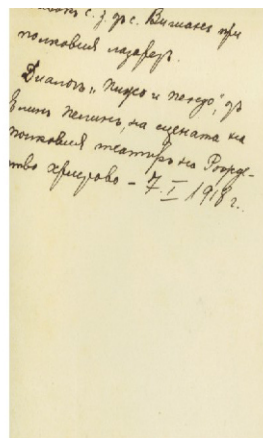 с. г. въ с. Вигиакъ при
полковия лазаретъ.
Диалогъ „Пижо и Пендо“, отъ
Елинъ Пелинъ, на сцената на
полковия театъръ на Рожде-
тво христово – 7. I 1918 г.